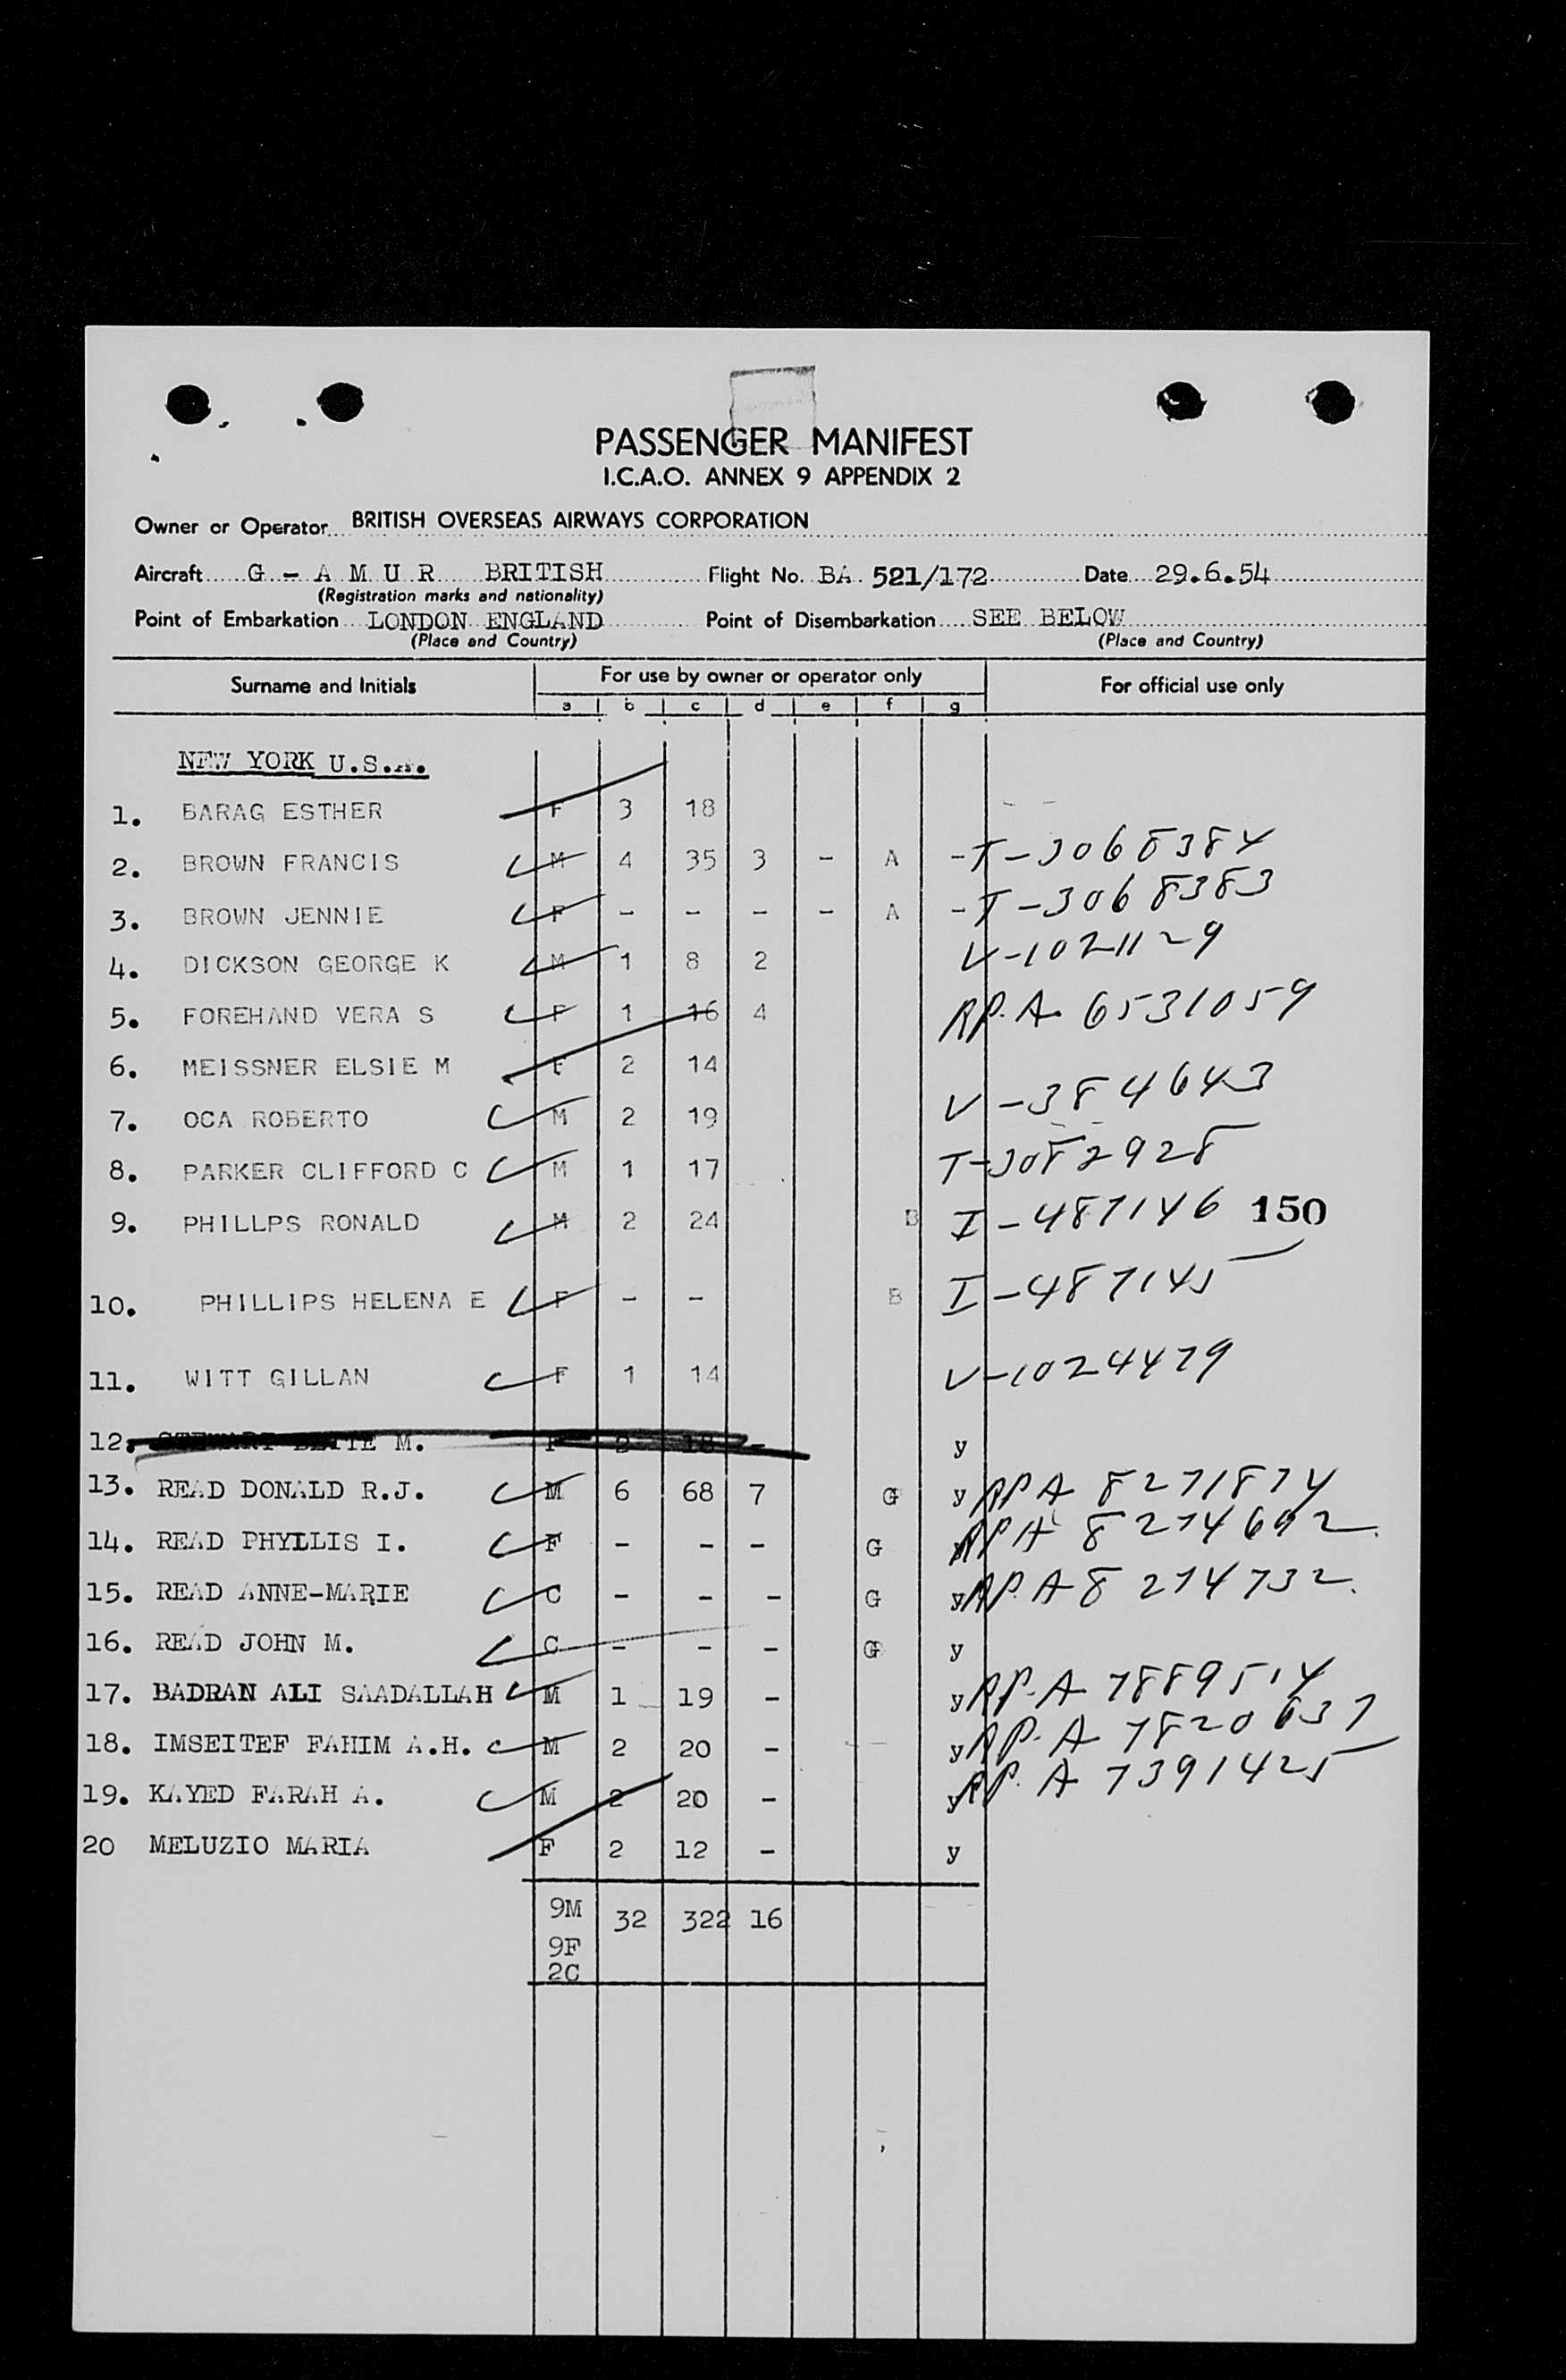 PASSENGER MANIFEST
I.C.A.O. ANNEX 9 APPENDIX 2
Owner or Operator BRITISH OVERSEAS AIRWAYS CORPORATION
Aircraft G - A M U R BRITISH Flight No. BA 521/172 Date 29.6.54
(Registration marks and nationality)
Point of Embarkation LONDON ENGLAND Point of Disembarkation SEE BELOW
(Place and Country) (Place and Country)
Surname and Initials For use by owner or operator only For official use only
a b c d e f g
NEW YORK U.S.A.
1. BARAG ESTHER F 3 18
2. BROWN FRANCIS M 4 35 3 - A - T-3068384
3. BROWN JENNIE F - - - - A - T-3068383
4. DICKSON GEORGE K M 1 8 2 V-1021129
5. FOREHAND VERA S F 1 16 4 RP.A. 6531059
6. MEISSNER ELSIE M F 2 14
7. OCA ROBERTO M 2 19 V-384643
8. PARKER CLIFFORD C M 1 17 T-3082928
9. PHILLPS RONALD M 2 24 B I-487146 150
10. PHILLIPS HELENA E F - - B I-487145
11. WITT GILLAN F 1 14 V-1024479
12. M. F 2 18 - y
13. READ DONALD R.J. M 6 68 7 G y RP A 8271874
14. READ PHYLLIS I. F - - - G RP A 8274692
15. READ ANNE-MARIE C - - - G y RP.A 8274732
16. READ JOHN M. C - - - G y
17. BADRAN ALI SAADALLAH M 1 19 - y RP.A 7889514
18. IMSEITEF FAHIM A.H. M 2 20 - y RP.A 7820637
19. KAYED FARAH A. M 2 20 - y RP.A 7391425
20 MELUZIO MARIA F 2 12 - y
9M 32 322 16
9F
2C